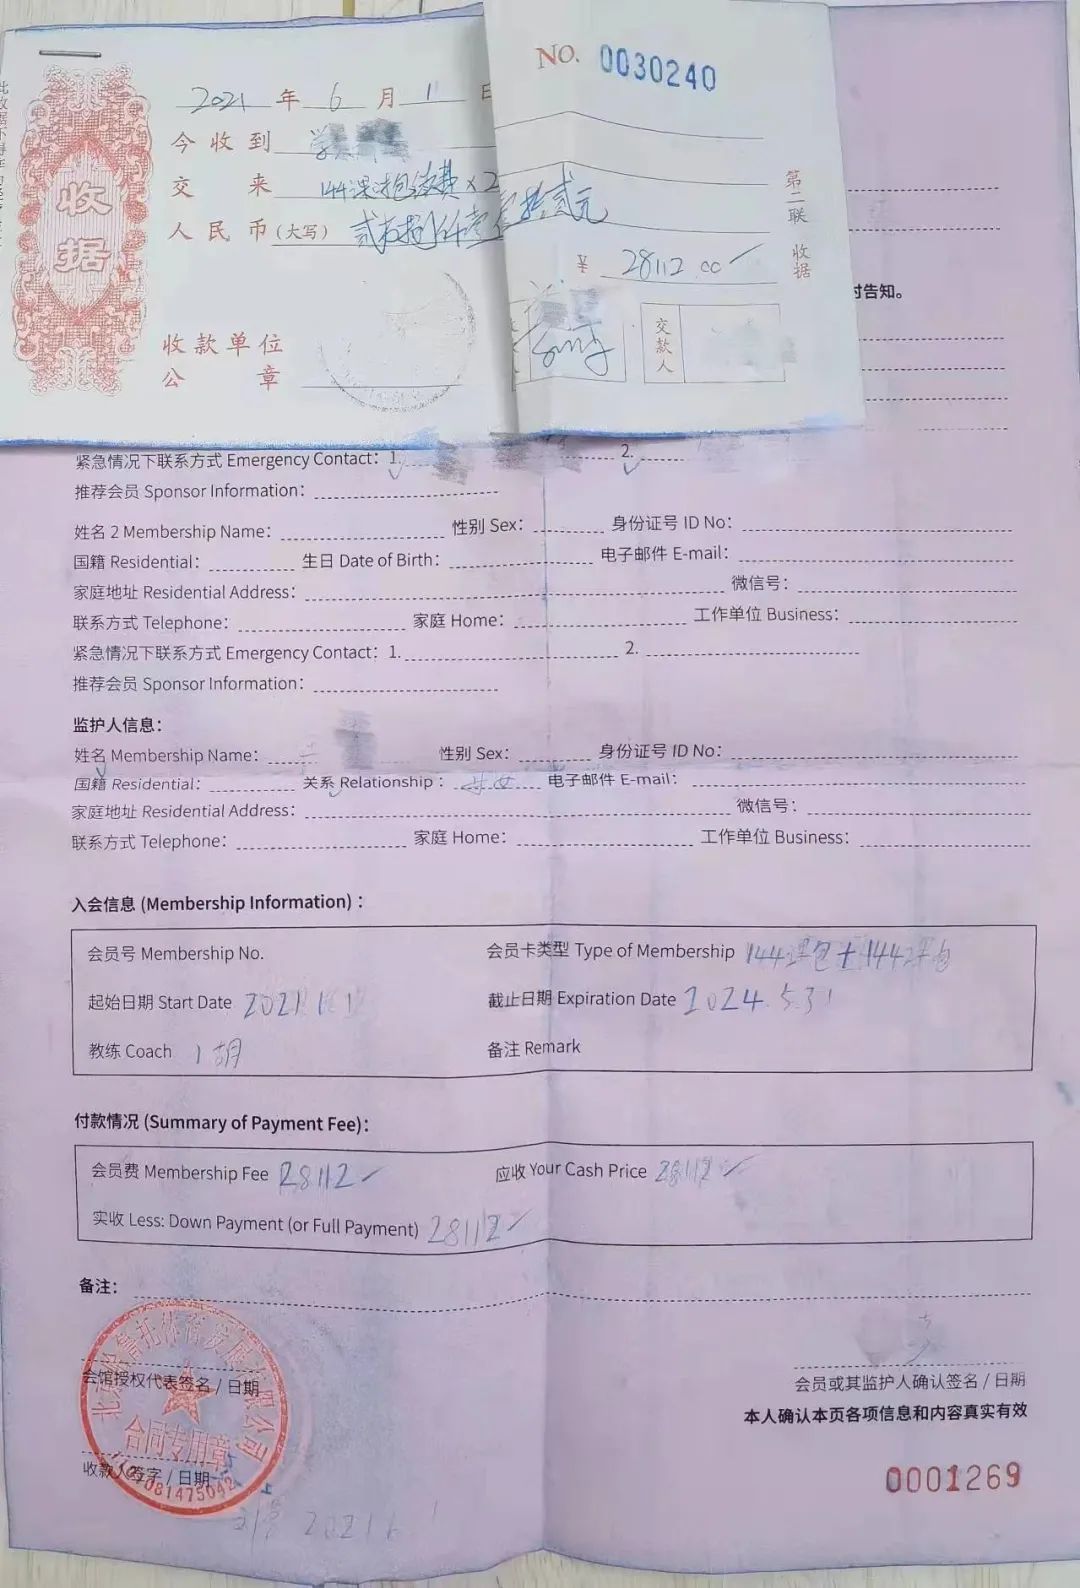 NO. 0030240
2021 年 6 月 1 日
今收到
交 来 144课包续费×2
人民币(大写) 贰万捌仟壹佰拾贰元
¥ 28112.00
收据
第二联 收据
收款单位
公 章
交款人
时告知。
紧急情况下联系方式 Emergency Contact: 1. 2.
推荐会员 Sponsor Information:
姓名 2 Membership Name: 性别 Sex: 身份证号 ID No:
国籍 Residential: 生日 Date of Birth: 电子邮件 E-mail:
家庭地址 Residential Address: 微信号:
联系方式 Telephone: 家庭 Home: 工作单位 Business:
紧急情况下联系方式 Emergency Contact: 1. 2.
推荐会员 Sponsor Information:
监护人信息:
姓名 Membership Name: 性别 Sex: 身份证号 ID No:
国籍 Residential: 关系 Relationship: 母女 电子邮件 E-mail:
家庭地址 Residential Address: 微信号:
联系方式 Telephone: 家庭 Home: 工作单位 Business:
入会信息 (Membership Information):
会员号 Membership No. 会员卡类型 Type of Membership 144课包+144课包
起始日期 Start Date 2021 截止日期 Expiration Date 2024.5.31
教练 Coach 胡 备注 Remark
付款情况 (Summary of Payment Fee):
会员费 Membership Fee 28112 应收 Your Cash Price 28112
实收 Less: Down Payment (or Full Payment) 28112
备注:
会馆授权代表签名 / 日期
会员或其监护人确认签名 / 日期
本人确认本页各项信息和内容真实有效
合同专用章
收款人签字 / 日期
0001269
2021